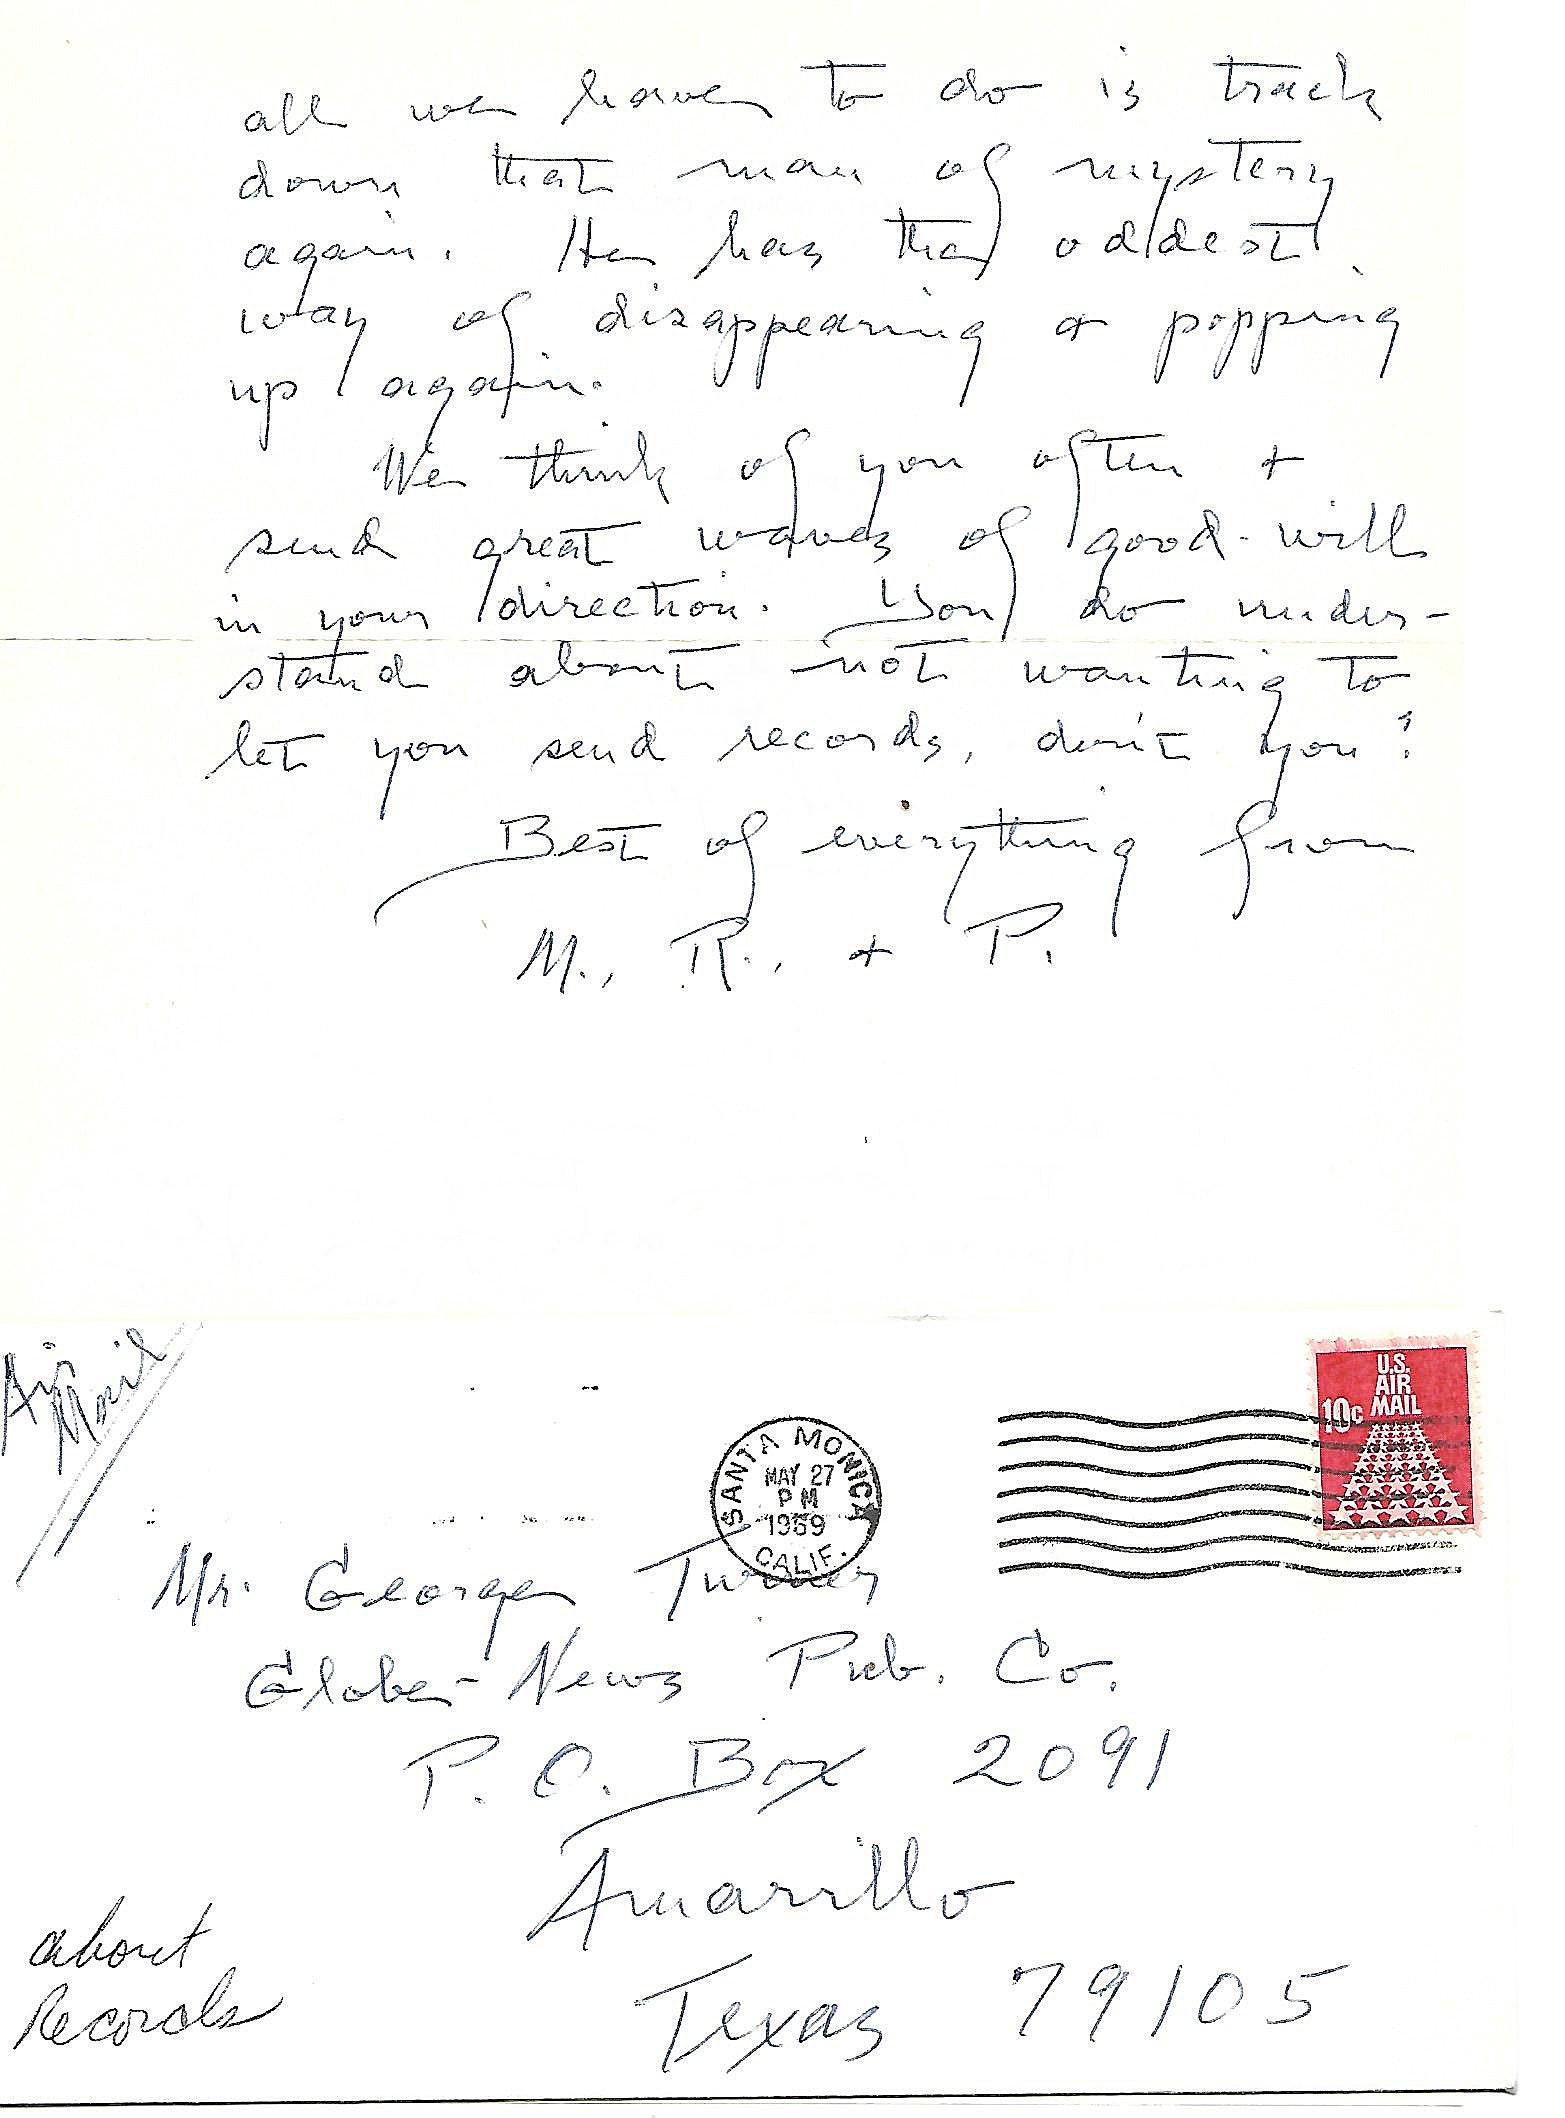 all we have to do is track
down that man of mystery
again. He has the oddest
way of disappearing & popping
up again.
We think of you often +
send great waves of good-will
in your direction. You do under-
stand about not wanting to
let you send records, don't you?
Best of everything from
M., R., + P.
Air
Mail
U.S.
AIR
MAIL
10c
SANTA MONICA
MAY 27
PM
1969
CALIF.
Mr. George Turner
Globe-News Pub. Co.
P. O. Box 2091
Amarillo
Texas 79105
about
Records